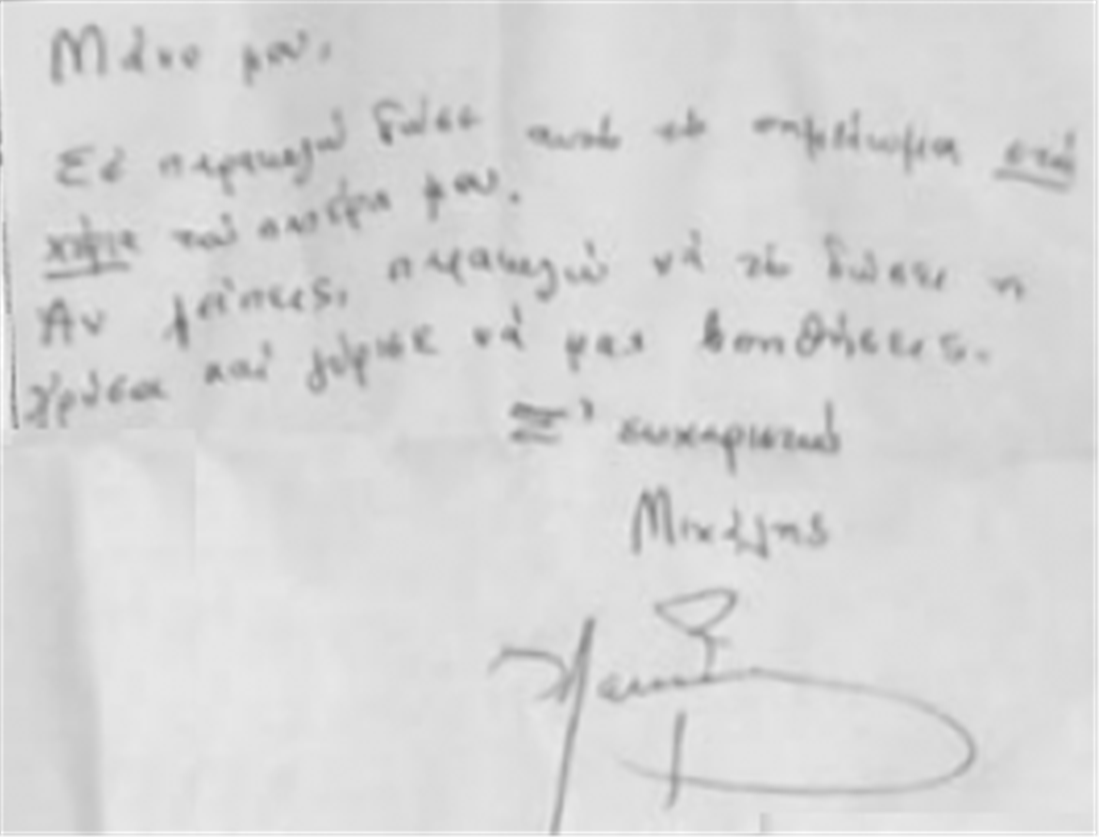 Μάνο μου,
Σέ παρακαλώ δώσε αυτό τό σημείωμα στά
χέρια τού πατέρα μου.
Αν λείπεις, παρακαλώ νά τό δώσει η
Χρύσα καί γύρισε νά μας βοηθήσεις.
Σ' ευχαριστώ
Μιχάλης